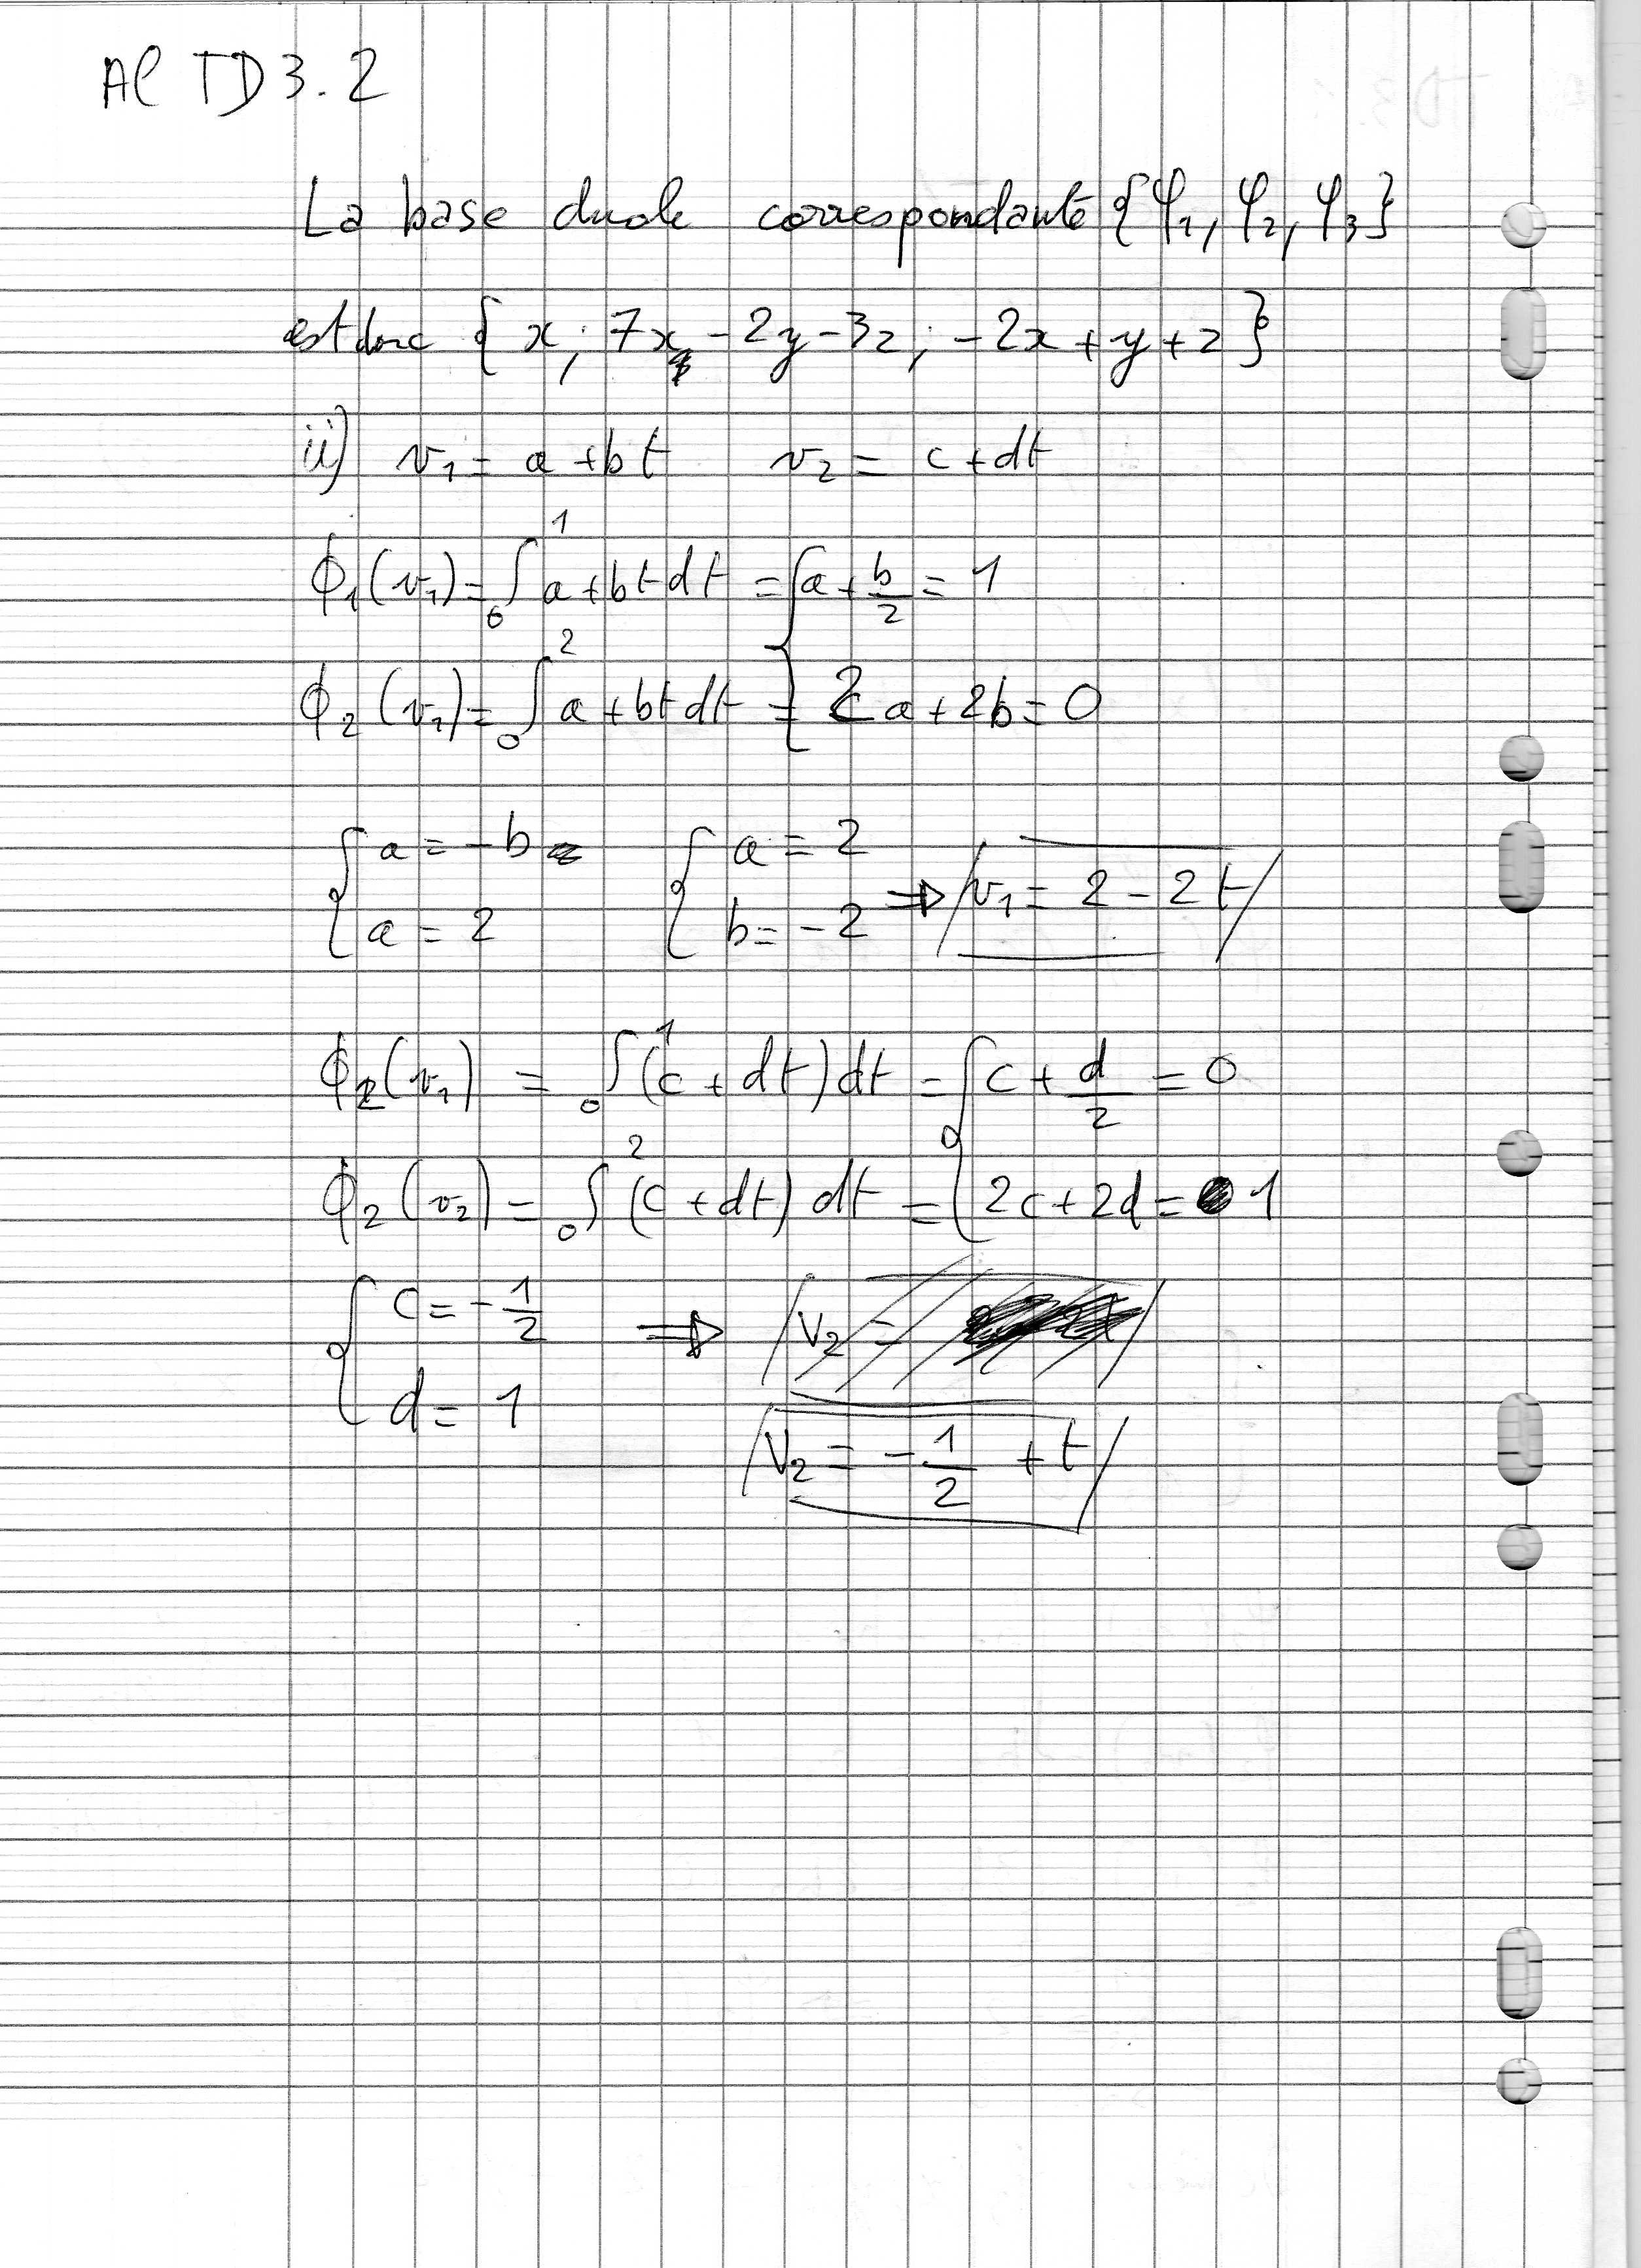 Al TD3.2
La base duale correspondante {φ₁, φ₂, φ₃}
est donc { x; 7x - 2y - 3z; -2x + y + z }
ii) v₁ = a + bt v₂ = c + dt
ϕ₁(v₁) = ₀∫¹ a + bt dt = { a + b/2 = 1
ϕ₂(v₁) = ₀∫² a + bt dt = { 2a + 2b = 0
{ a = -b { a = 2
{ a = 2 { b = -2 ⇒ v₁ = 2 - 2t
ϕ₂(v₁) = ₀∫¹ (c + dt) dt = { c + d/2 = 0
ϕ₂(v₂) = ₀∫² (c + dt) dt = { 2c + 2d = 1
{ c = -1/2 ⇒ v₂ =
{ d = 1
v₂ = -1/2 + t